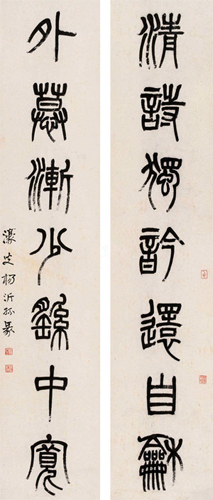 清詩獨訡還自龢
外慕漸少繇中寬
濠叟楊沂孫篆